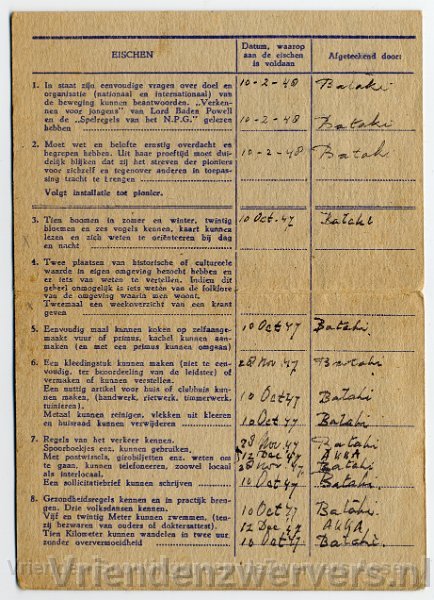 EISCHEN
Datum, waarop aan de eischen is voldaan
Afgeteekend door:
1. In staat zijn eenvoudige vragen over doel en
organisatie (nationaal en internationaal) van
de beweging kunnen beantwoorden. „Verken-
nen voor jongens” van Lord Baden Powell
en de „Spelregels van het N.P.G.” gelezen
hebben
10-2-48 Bataki
10-2-48 Bataki
2. Moet wet en belofte ernstig overdacht en
begrepen hebben. Uit haar proeftijd moet dui-
delijk blijken dat zij het streven der pioniers
voor zichzelf en tegenover anderen in toepas-
sing tracht te brengen
10-2-48 Bataki
Volgt installatie tot pionier.
3. Tien boomen in zomer en winter, twintig
bloemen en zes vogels kennen, kaart kunnen
lezen en zich weten te oriënteeren bij dag
en nacht
10 Oct. 47 Batahi
4. Twee plaatsen van historische of cultureele
waarde in eigen omgeving bezocht hebben en
er iets van weten te vertellen. Indien dit
geheel onmogelijk is iets weten van de folklore
van de omgeving waarin men woont.
Tweemaal een weekoverzicht van een krant
geven
5. Eenvoudig maal kunnen koken op zelfaange-
maakt vuur of primus, kachel kunnen aan-
maken (en met een primus kunnen omgaan)
10 Oct 47 Batahi.
6. Een kleedingstuk kunnen maken (niet te een-
voudig, ter beoordeeling van de leidster) of
vermaken of kunnen verstellen.
Een nuttig artikel voor huis of clubhuis kun-
nen maken, (handwerk, rietwerk, timmerwerk,
tuinieren).
Metaal kunnen reinigen, vlekken uit kleeren
en huisraad kunnen verwijderen
28 Nov. 47 Batahi
10 Oct 47 Batahi
10 Oct 47 Batahi.
7. Regels van het verkeer kennen.
Spoorboekjes enz. kunnen gebruiken,
Met postwissels, girobiljetten enz. weten om
te gaan, kunnen telefoneeren, zoowel locaal
als interlocaal.
Een sollicitatiebrief kunnen schrijven
28 Nov. 47 Batahi
12 Dec 47 AKKA
28 Nov. 47 Batahi
10 Oct 47 Batahi.
8. Gezondheidsregels kennen en in practijk bren-
gen. Drie volksdansen kennen.
Vijf en twintig Meter kunnen zwemmen, (ten-
zij bezwaren van ouders of doktersattest).
Tien Kilometer kunnen wandelen in twee uur
zonder oververmoeidheid
10 Oct 47 Batahi.
12 Dec 47 AKKA
10 Oct 47 Batahi.
Vriendenzwervers.nl